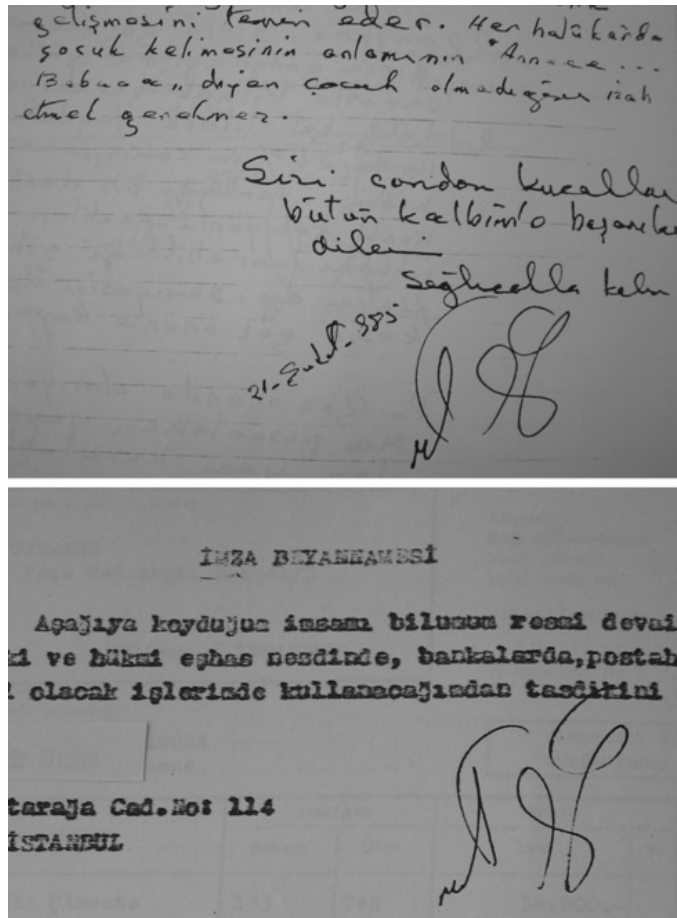 gelişmesini temin eder. Her halükârda
çocuk kelimesinin anlamının "Annece...
Babaca„ diyen çocuk olmadığını izah
etmek gerekmez.
Sizi candan kucaklar
bütün kalbimle başarılar
dilerim
Sağlıcakla kalın
21-Eylül-985
İMZA BEYANNAMESİ
Aşağıya koyduğum imzamı bilumum resmi devai
ki ve hükmi eşhas nezdinde, bankalarda,postah
l olacak işlerimde kullanacağımdan tasdikini
tarağa Cad.No: 114
İSTANBUL